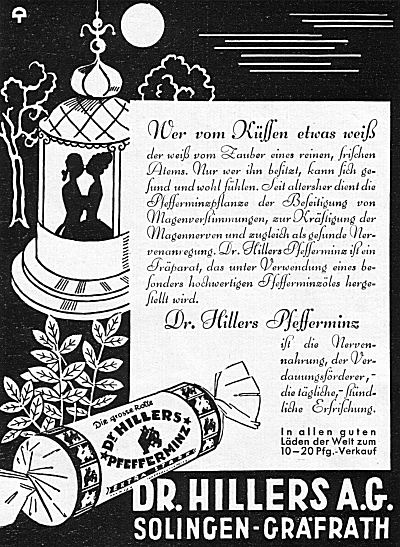 Wer vom Küssen etwas weiß
der weiß vom Zauber eines reinen, frischen
Atems. Nur wer ihn besitzt, kann sich ge-
sund und wohl fühlen. Seit altersher dient die
Pfefferminzpflanze der Beseitigung von
Magenverstimmungen, zur Kräftigung der
Magennerven und zugleich als gesunde Ner-
venanregung. Dr. Hillers Pfefferminz ist ein
Präparat, das unter Verwendung eines be-
sonders hochwertigen Pfefferminzöles herge-
stellt wird.
Dr. Hillers Pfefferminz
ist die Nerven-
nahrung, der Ver-
dauungsförderer,-
die tägliche,-stünd-
liche Erfrischung.
In allen guten
Läden der Welt zum
10-20 Pfg.-Verkauf
Die grosse Rolle
DR. HILLERS
PFEFFERMINZ
DR. HILLERS A.G.
SOLINGEN-GRÄFRATH